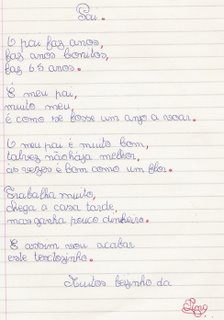 Pai.
O pai faz anos,
faz anos bonitos,
faz 65 anos.
É meu pai,
muito meu,
é como se fosse um anjo a voar.
O meu pai é muito bom,
talvez não haja melhor,
as vezes é bom como um flor.
Trabalha muito,
chega a casa tarde,
mas ganha pouco dinheiro.
E assim vou acabar
este textozinho.
Muitos beijinho da